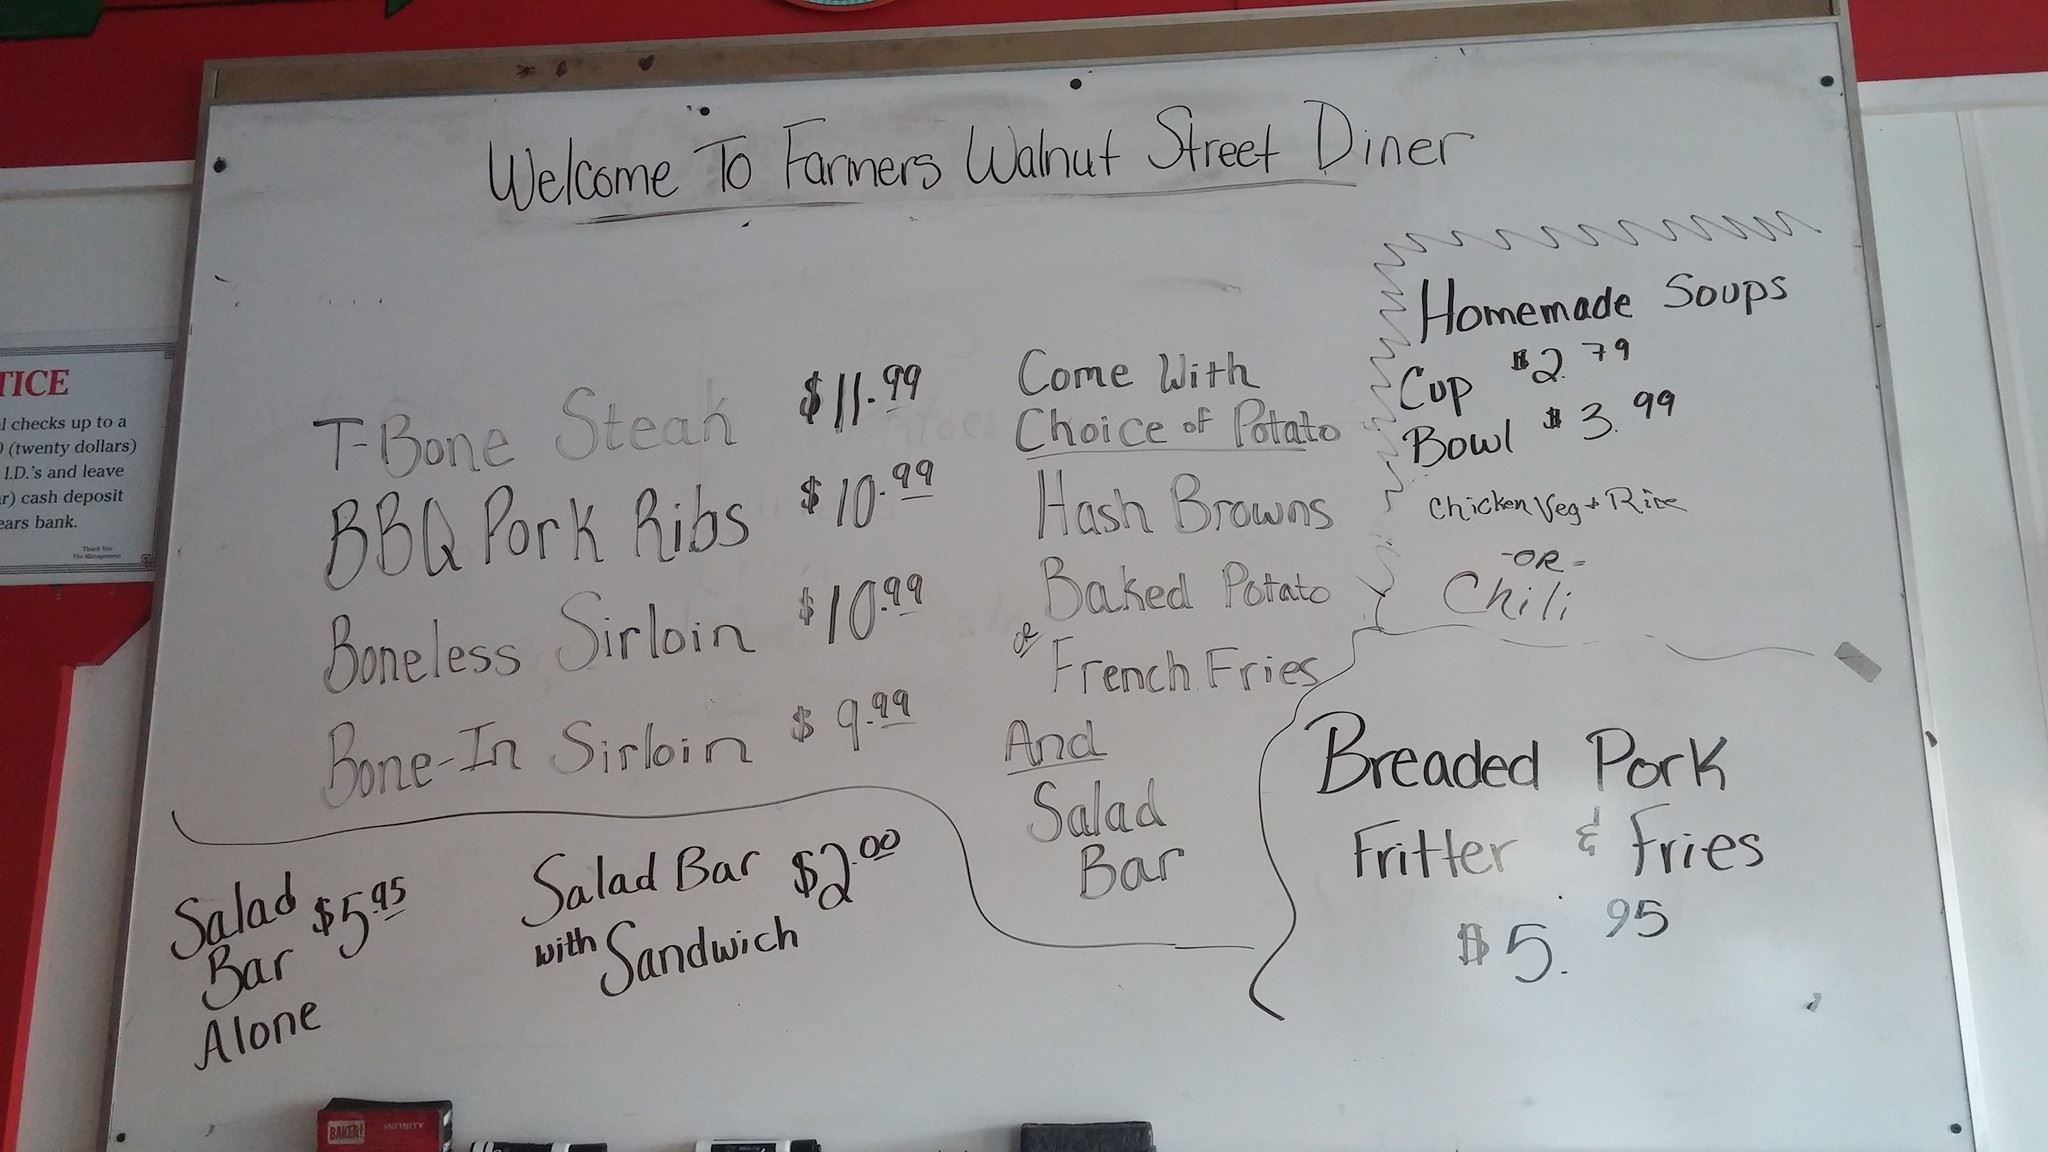 Welcome To Farmers Walnut Street Diner
T-Bone Steak $11.99
BBQ Pork Ribs $10.99
Boneless Sirloin $10.99
Bone-In Sirloin $9.99
Come With
Choice of Potato
Hash Browns
Baked Potato
or
French Fries
And
Salad
Bar
Homemade Soups
Cup $2.79
Bowl $3.99
Chicken Veg + Rice
-OR-
Chili
Breaded Pork
Fritter & Fries
$5.95
Salad
Bar $5.95
Alone
Salad Bar $2.00
with Sandwich
TICE
l checks up to a
(twenty dollars)
I.D.'s and leave
r) cash deposit
ears bank.
Thank You
The Management
BAKER!
INFINITY